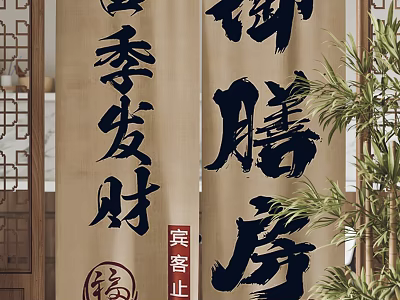 御膳房
宾客止
四季发财
福